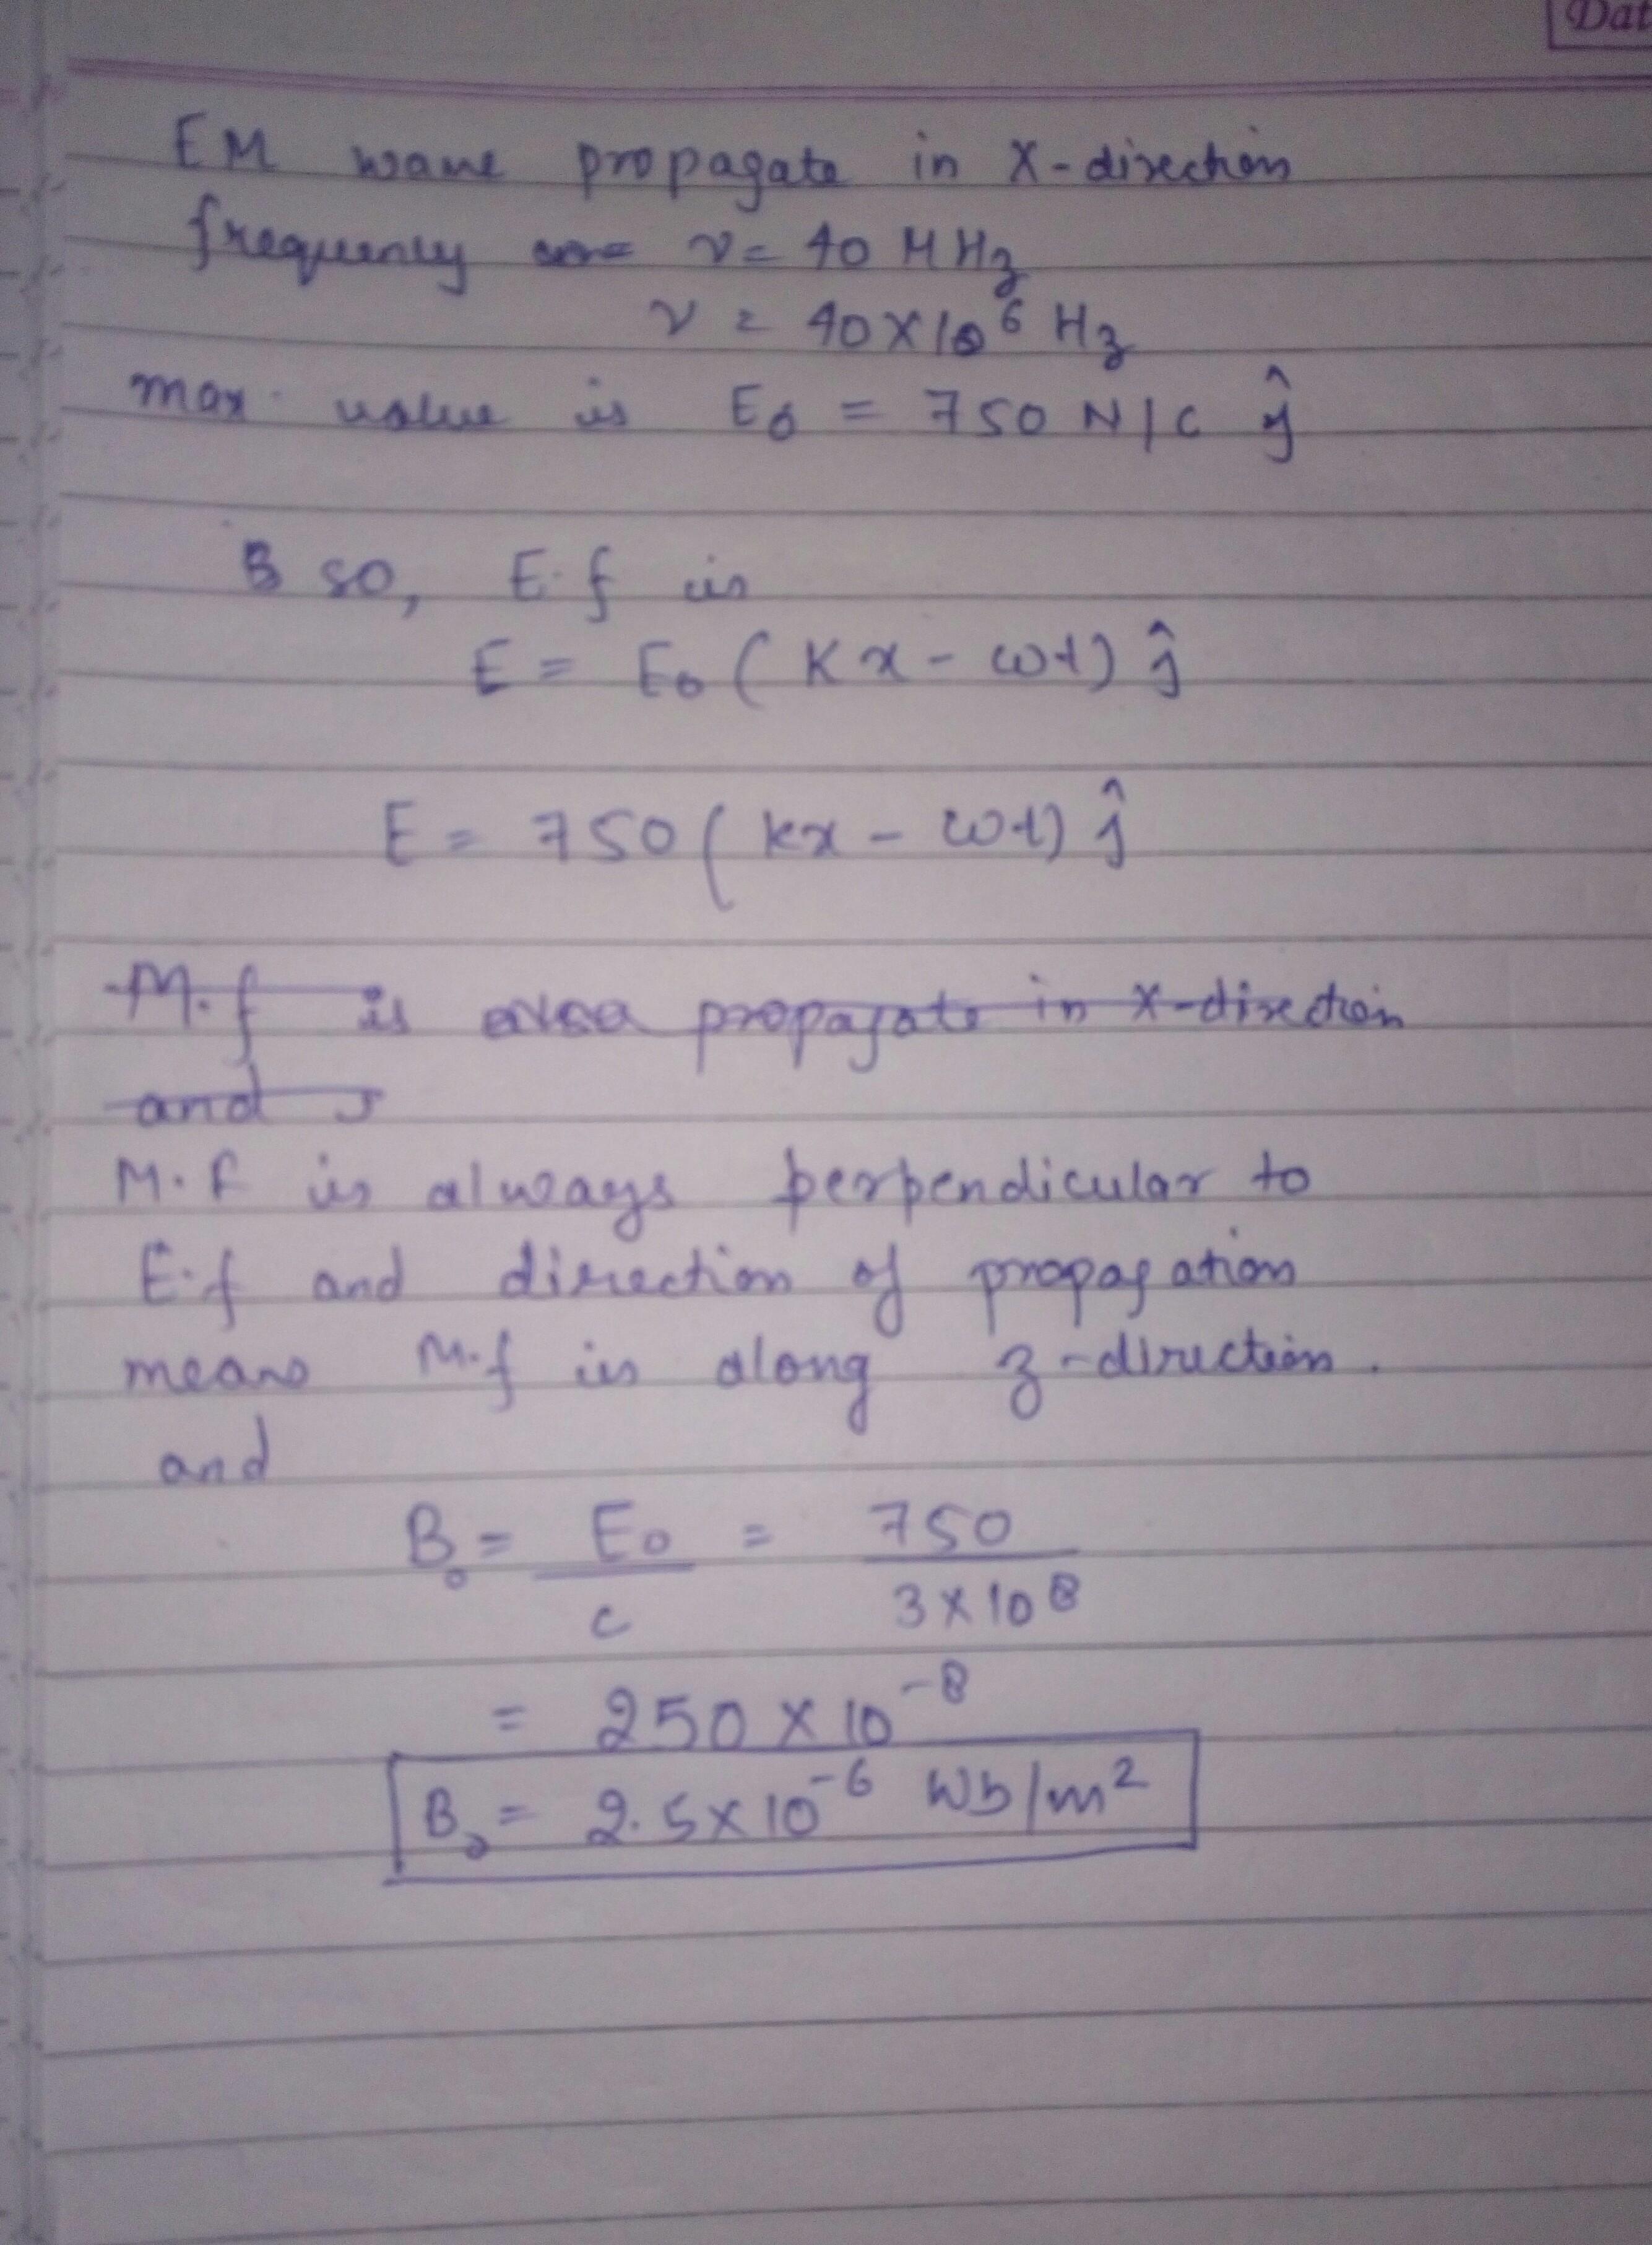 Dat
EM wave propagate in X-direction
frequency ν = 40 MHz
ν = 40×10⁶ Hz
max. value is E₀ = 750 N/C ĵ
B so, E.f is
E = E₀ (Kx - ωt) ĵ
E = 750 (kx - ωt) ĵ
M.f is also propagate in X-direction
and
M.f is always perpendicular to
E.f and direction of propagation
means M.f is along z-direction.
and
B₀ = E₀/c = 750/3×10⁸
= 250 × 10⁻⁸
B₀ = 2.5×10⁻⁶ Wb/m²